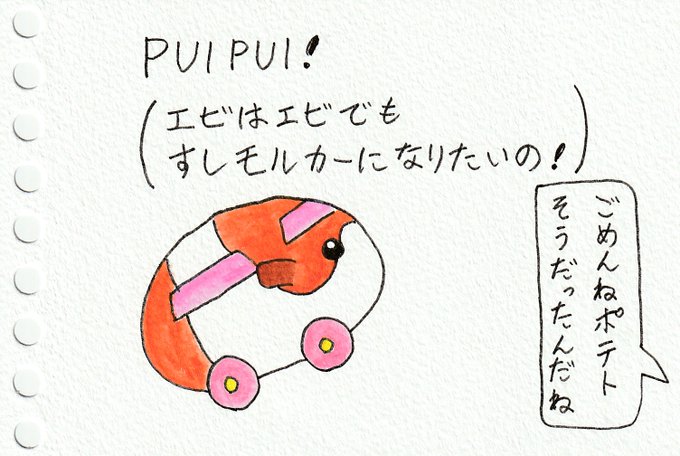 PUIPUI!
(エビはエビでも
すしモルカーになりたいの!)
ごめんねポテト
そうだったんだね